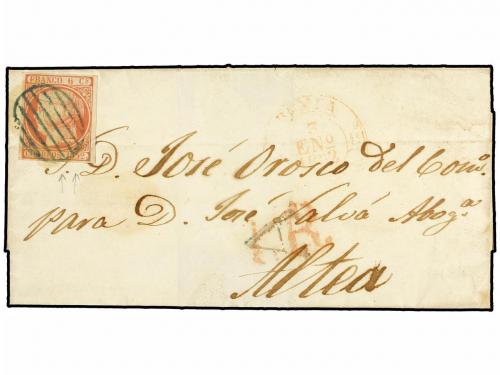 FRANCO 6 Cs
3
ENO
S. D. José Orosco del Comº.
para D. José Zalvá Abogº.
Altea